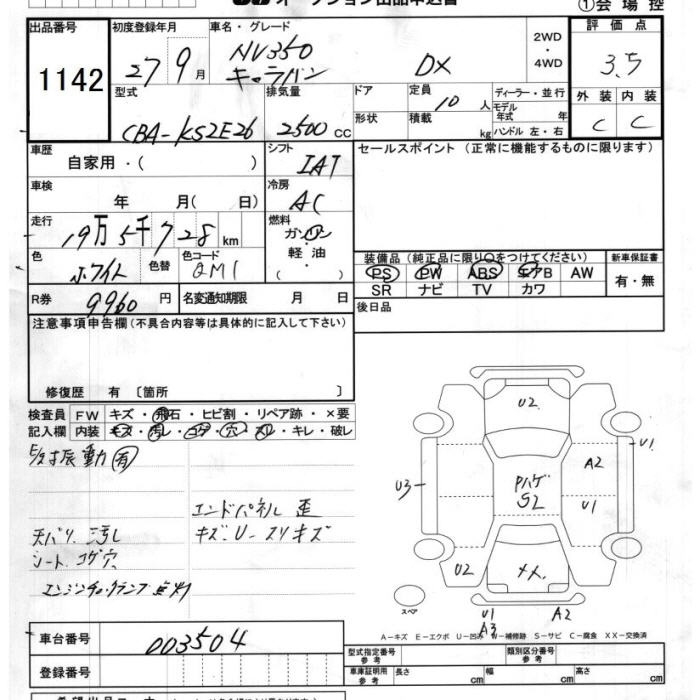 オークション出品申込書
①会場控
出品番号 1142
初度登録年月 27 9月
車名・グレード NV350 キャラバン DX
2WD ・ 4WD
評価点 3.5
型式 CBA-KS2E26
排気量 2500 cc
ドア 形状
定員 10 人
積載 kg
ディーラー・並行
モデル年式 年
ハンドル 左・右
外装 C
内装 C
車歴 自家用・( )
シフト IAT
セールスポイント(正常に機能するものに限ります)
車検 年 月( 日)
冷房 AC
走行 19万5千728 km
燃料 ガソリン ・ 軽油 ( )
色 ホワイト
色替
色コード QM1
装備品(純正品に限り○をつけてください)
新車保証書
PS PW ABS エアB AW
有・無
SR ナビ TV カワ
R券 9960 円
名変通知期限 月 日
後日品
注意事項申告欄(不具合内容等は具体的に記入して下さい)
修復歴 有 〔箇所 〕
検査員 FW キズ・飛石・ヒビ割・リペア跡・×要
記入欄 内装 キズ・汚レ・コゲ・穴・スレ・キレ・破レ
振動 有
エンドパネル 歪
天バリ 汚し キズU-スリキズ
シート コゲ穴
エンジンチェックランプ点灯
U2
U1
A2
U3
Pハゲ
S2
U1
U2
スペア
U1
A2
A3
A-キズ E-エクボ U-凹ミ W-補修跡 S-サビ C-腐食 XX-交換済
車台番号 003504
登録番号
型式指定番号 参考
類別区分番号 参考
車庫証明用 参考 長さ cm 幅 cm 高さ cm